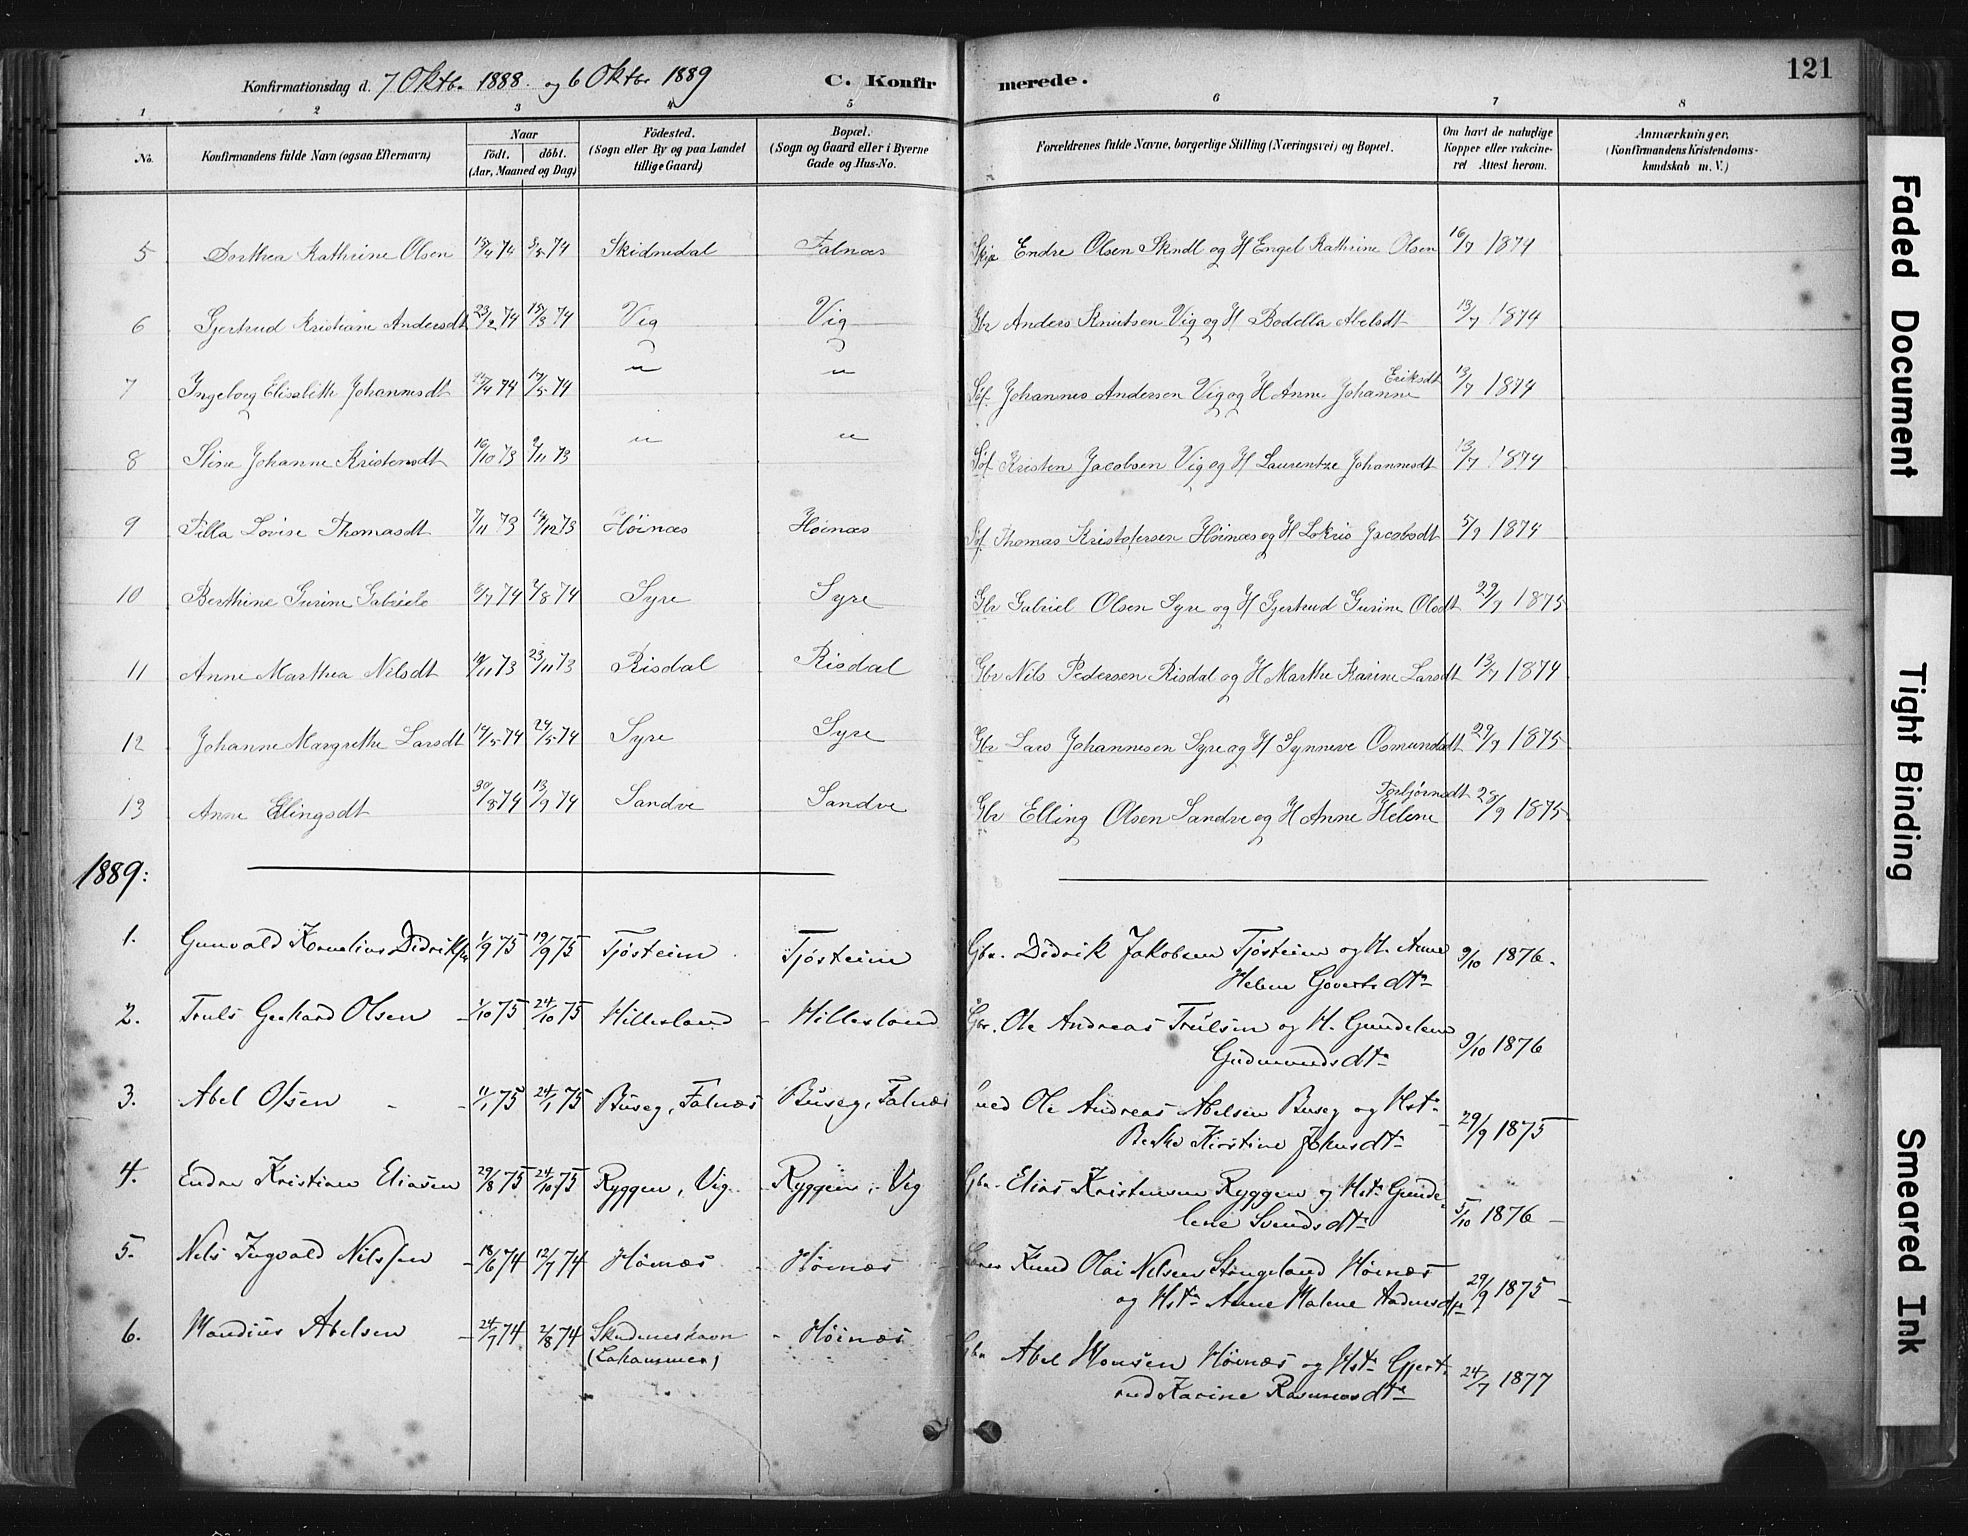 Konfirmationsdag d. 7 Oktbr. 1888 og 6 Oktbr 1889 C. Konfirmerede. 121
1 2 3 4 5 6 7 8
No. Konfirmandens fulde Navn (ogsaa Efternavn) Naar født. døbt. (Aar, Maaned og Dag) Födested. (Sogn eller By og paa Landet tillige Gaard) Bopæl. (Sogn og Gaard eller i Byerne Gade og Hus-No. Forældrenes fulde Navne, borgerlige Stilling (Næringsvei) og Bopæl. Om havt de naturlige Kopper eller vakcineret Attest herom. Anmærkninger. (Konfirmandens Kristendomskundskab m. V.)
5 Dorthea Kathrine Olsen 74 74 Skidnedal Falnæs Endre Olsen Skndl og H Engel Kathrine Olsen 16/7 1879
6 Gjertrud Kristiane Andersdt 23/2 74 15/3 74 Vig Vig Gbr Anders Knutsen Vig og H Bodella Abelsdt 13/7 1874
7 Ingeborg Elisabeth Johannesdt 74 17/5 74 " " Johannes Andersen Vig og H Anne Johanne Eriksdt 13/7 1874
8 Stine Johanne Kristensdt 16/10 73 9/11 73 " " Kristen Jacobsen Vig og H Laurentze Johannesdt 13/7 1874
9 Tilla Lovise Thomasdt 7/11 73 14/12 73 Høinæs Høinæs Thomas Kristofersen Høinæs og H Jacobsdt 5/9 1874
10 Berthine Gurine Gabriels 74 74 Syre Syre Gbr Gabriel Olsen Syre og H Gjertrud Gurine Olsdt 29/7 1875
11 Anne Marthea Nilsdt 73 23/11 73 Risdal Risdal Gbr Nils Pedersen Risdal og H Marthe Karine Larsdt 13/7 1874
12 Johanne Margrethe Larsdt 14/5 74 24/5 74 Syre Syre Gbr Lars Johannesen Syre og H Synneve Osmundsdt 29/7 1875
13 Anne Ellingsdt 30/8 74 13/9 74 Sandve Sandve Gbr Elling Olsen Sandve og H Anne Helene Torbjørnsdt 28/9 1875
1889:
1. Gunvald Kornelius Didriksen 1/9 75 19/9 75 Tjøsteim Tjøsteim Gbr. Didrik Jakobsen Tjøsteim og H. Anne
Helene Govertsdtr 9/10 1876.
2. Truls Gerhard Olsen 1/10 75 24/10 75 Hillesland Hillesland Gbr. Ole Andreas Trulsen og H. Gundelene
Gudmundsdtr 9/10 1876
3. Abel Olsen 11/1 75 24/1 75 Buseg, Falnæs Buseg, Falnæs Ole Andreas Abelsen Buseg og Hstr
Kirstine Johnsdtr 29/9 1875
4. Endre Kristian Eliasen 29/8 75 24/10 75 Ryggen, Vig Ryggen, Vig Gbr. Elias Kristensen Ryggen og Hstr Gunde-
lene Svendsdtr 5/10 1876
5. Nils Ingvald Nilssen 18/6 74 12/7 74 Høinæs Høinæs Knud Olai Nilsen Stangeland Høinæs
og Hstr Anne Malene 29/9 1875
6. Mandius Abelsen 24/7 74 2/8 74 Skudeneshavn Høinæs
(Lahammer) Gbr Abel Monsen Høinæs og Hstr Gjert-
rud Karine Rasmusdtr 24/7 1877
Faded Document
Tight Binding
Smeared Ink